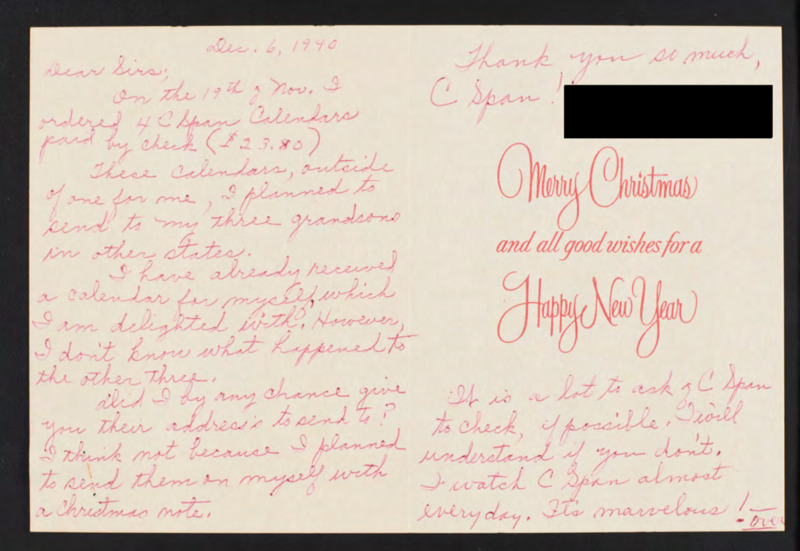 Dec. 6, 1990
Dear Sirs,
On the 19th of Nov. I
ordered 4 C Span Calendars
paid by check ($23.80)
These calendars, outside
of one for me, I planned to
send to my three grandsons
in other states.
I have already received
a calendar for myself, which
I am delighted with. However,
I don't know what happened to
the other three.
Did I by any chance give
you their address's to send to?
I think not because I planned
to send them on myself with
a Christmas note.
Thank you so much,
C Span!
Merry Christmas
and all good wishes for a
Happy New Year
It is a lot to ask of C Span
to check, if possible. I will
understand if you don't.
I watch C Span almost
everyday. It's marvelous!
-over